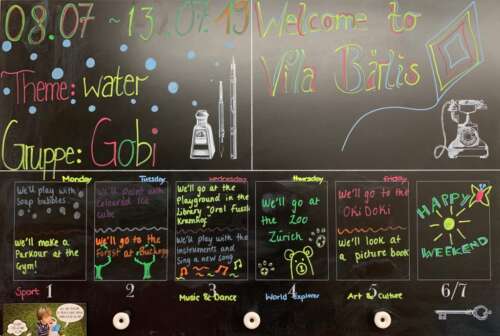 08.07 ~ 13.07.19
Welcome to
Villa Bärlis
Theme: water
Gruppe: Gobi
Monday
Tuesday
Wednesday
Thursday
Friday
We'll play with
soap bubbles
We'll make a
Parkour at the
Gym!
We'll paint with
Coloured Ice
cube
We'll go to the
Forest at
We'll go at the
Playground in the
Library
We'll play with the
instruments and
Sing a new song
We'll go at
the Zoo
Zürich
We'll go to the
Oki Doki
We'll look at
a picture book
HAPPY
WEEKEND
Sport 1
2
3
4
5
6/7
Music & Dance
World Explorer
Art & Culture